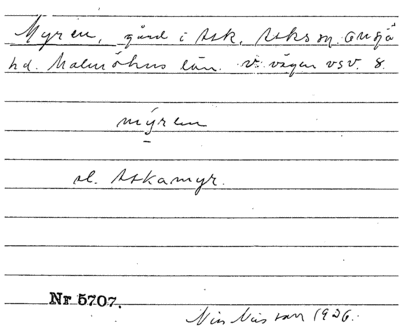 Myren, gård i Ask. Asks sn. Onsjö
hd. Malmöhus län. V. vägen VSV. 8.
mýren
el. Askamyr.
Nr 5707.
1926.